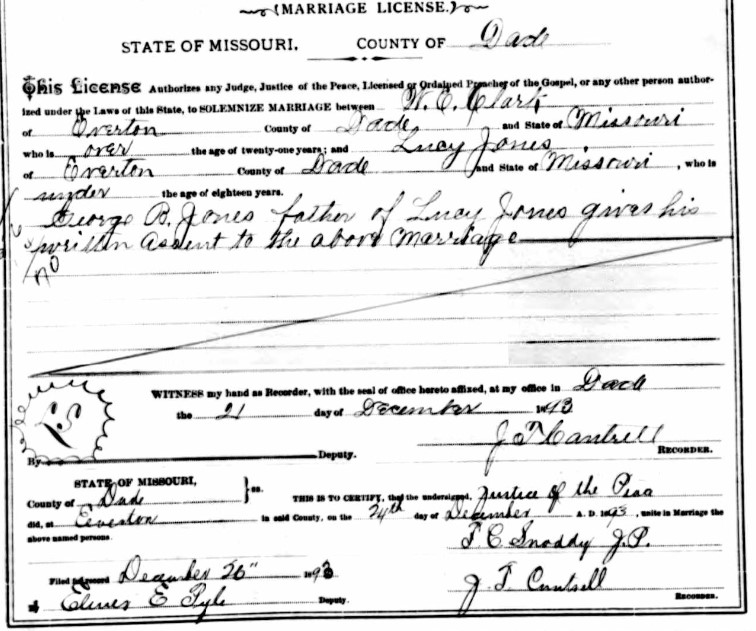 (MARRIAGE LICENSE.)
STATE OF MISSOURI, COUNTY OF Dade
This License Authorizes any Judge, Justice of the Peace, Licensed or Ordained Preacher of the Gospel, or any other person author-
ized under the Laws of this State, to SOLEMNIZE MARRIAGE between W. C. Clark
of Everton County of Dade and State of Missouri
who is over the age of twenty-one years; and Lucy Jones
of Everton County of Dade and State of Missouri, who is
under the age of eighteen years.
George B. Jones father of Lucy Jones gives his
written assent to the above Marriage
WITNESS my hand as Recorder, with the seal of office hereto affixed, at my office in Dade
the 21 day of December 1893
LS
J T Cantrell
By Deputy. RECORDER.
STATE OF MISSOURI,
County of Dade } ss. THIS IS TO CERTIFY, that the undersigned, Justice of the Peace
did, at Everton in said County, on the 24th day of December A. D. 1893, unite in Marriage the
above named persons.
T. C. Snoddy J.P.
Filed for record December 26" 1893
J. T. Cantrell
E Pyle Deputy. RECORDER.